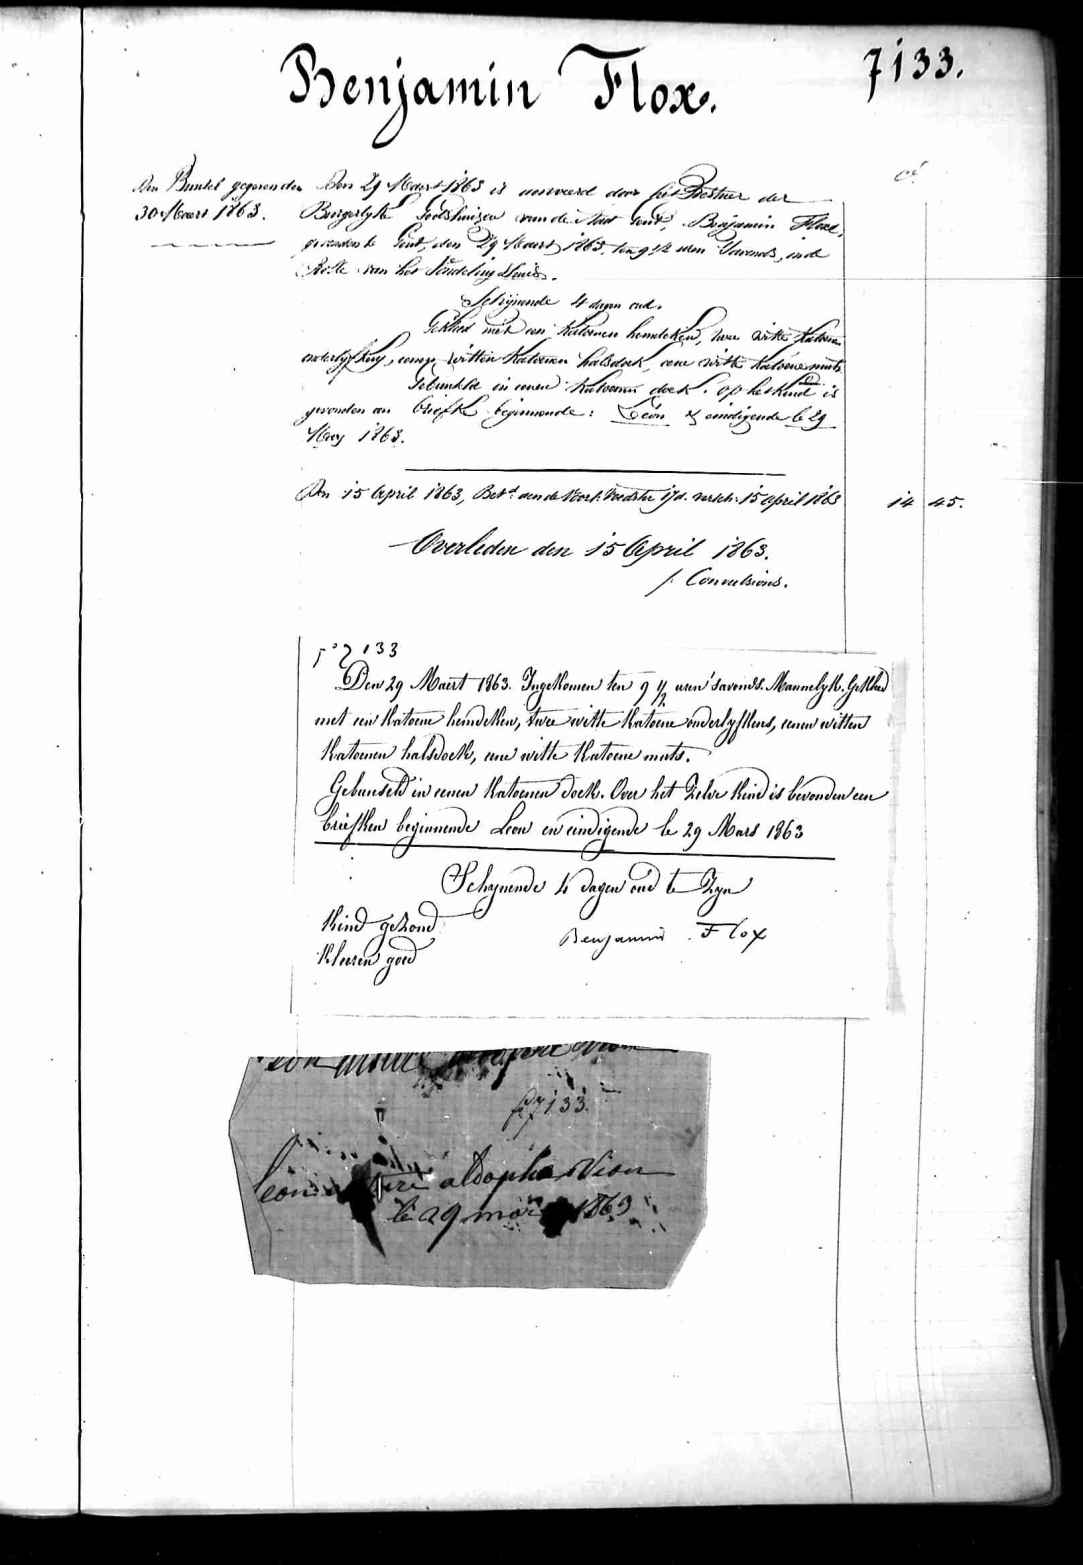 Benjamin Flox.
7133.
Den Bunsel gegeven den
30 Maert 1863.
Den 29 Maert 1863 is aenveerd door het Bestuer der
Burgerlyke Godshuizen van de Stad Gent, Benjamin Flox,
gevonden te Gent, den 29 Maert 1863, ten 9 1/2 uren 's avonds, in de
Rolle van het Vondeling Huis.
Schijnende 4 dagen oud.
Gekleed met een katoenen hemdeken, twee witte katoene
onderlyfkens, eenen witten katoenen halsdoek, eene witte katoene muts
Gebunseld in eenen katoenen doek. Op het kind is
gevonden een briefke beginnende: Léon & eindigende le 29
1863.
Den 15 April 1863, Bet.d aen de Voedster 17 d. 15 April 1863
14 45.
Overleden den 15 April 1863.
Convulsions.
7133
Den 29 Maert 1863. Ingekomen ten 9 1/2 uren 's avonds. Mannelyk. Gekleed
met een katoene hemdeken, twee witte katoene onderlyfkens, eenen witten
katoenen halsdoek, eene witte katoene muts.
Gebunseld in eenen katoenen doek. Over het zelve kind is bevonden een
briefken beginnende Leon en eindigende le 29 Mars 1863
Schynende 4 dagen oud te zyn
Kind gezond
Benjamin Flox
Kleeren goed
7133.
leon aldophe
le 29 mars 1863